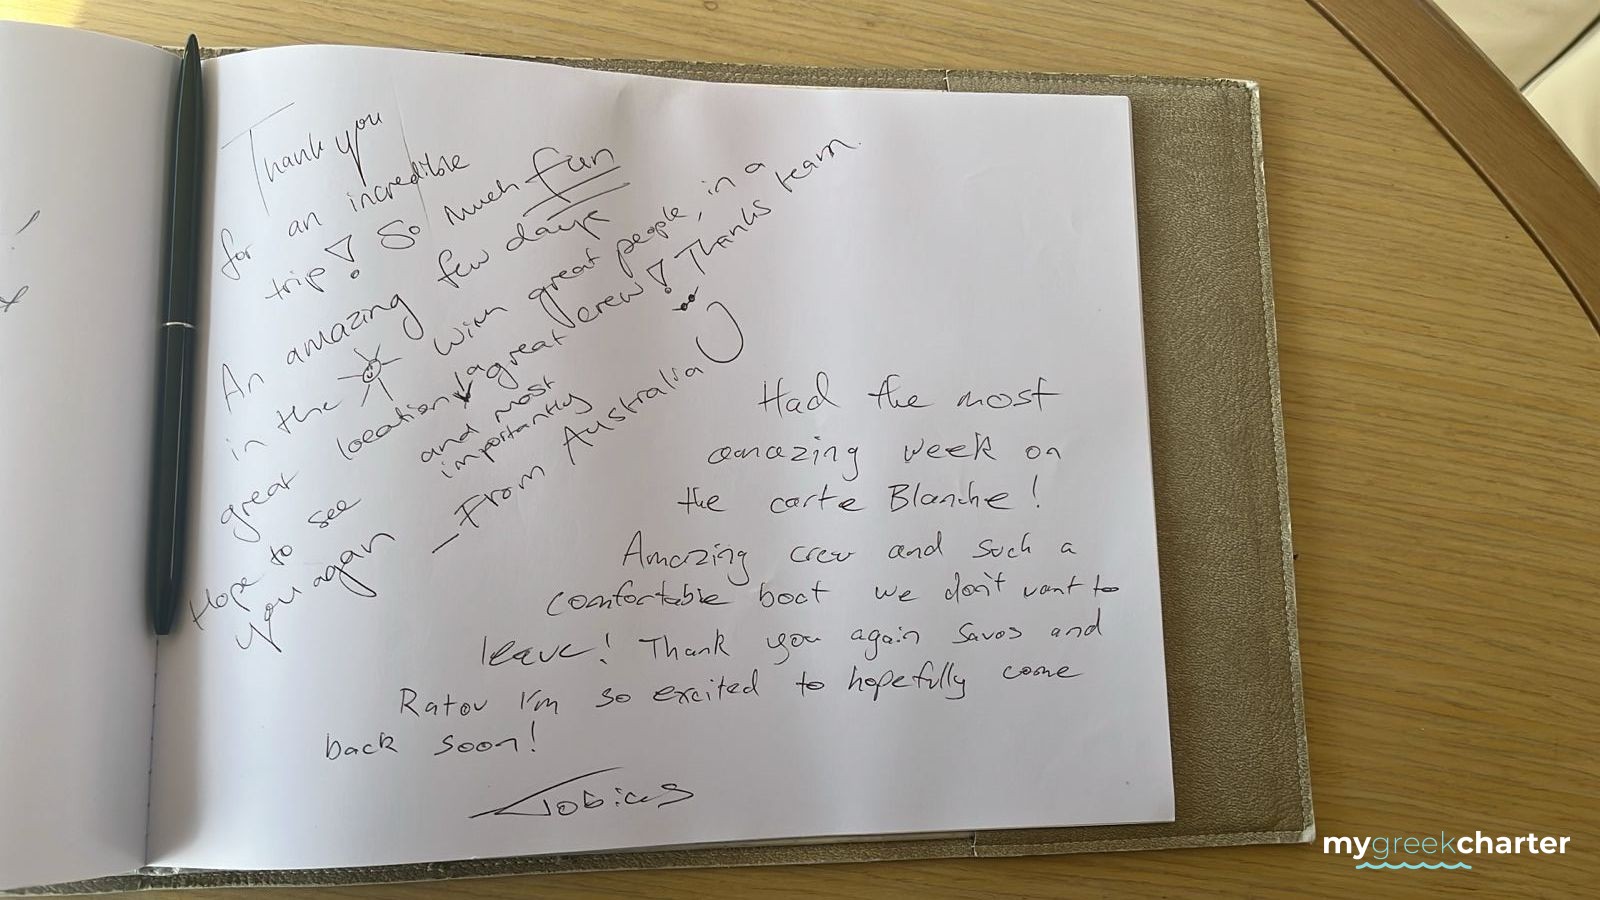 Thank you
for an incredible
trip! So much fun
An amazing few days
in the with great people, in a
great location, a great crew! Thanks team.
and most
importantly
Hope to see
you again
—From Australia
Had the most
amazing week on
the carte Blanche!
Amazing crew and such a
comfortable boat we don't want to
leave! Thank you again Savos and
Ratou I'm so excited to hopefully come
back soon!
Tobias
mygreekcharter